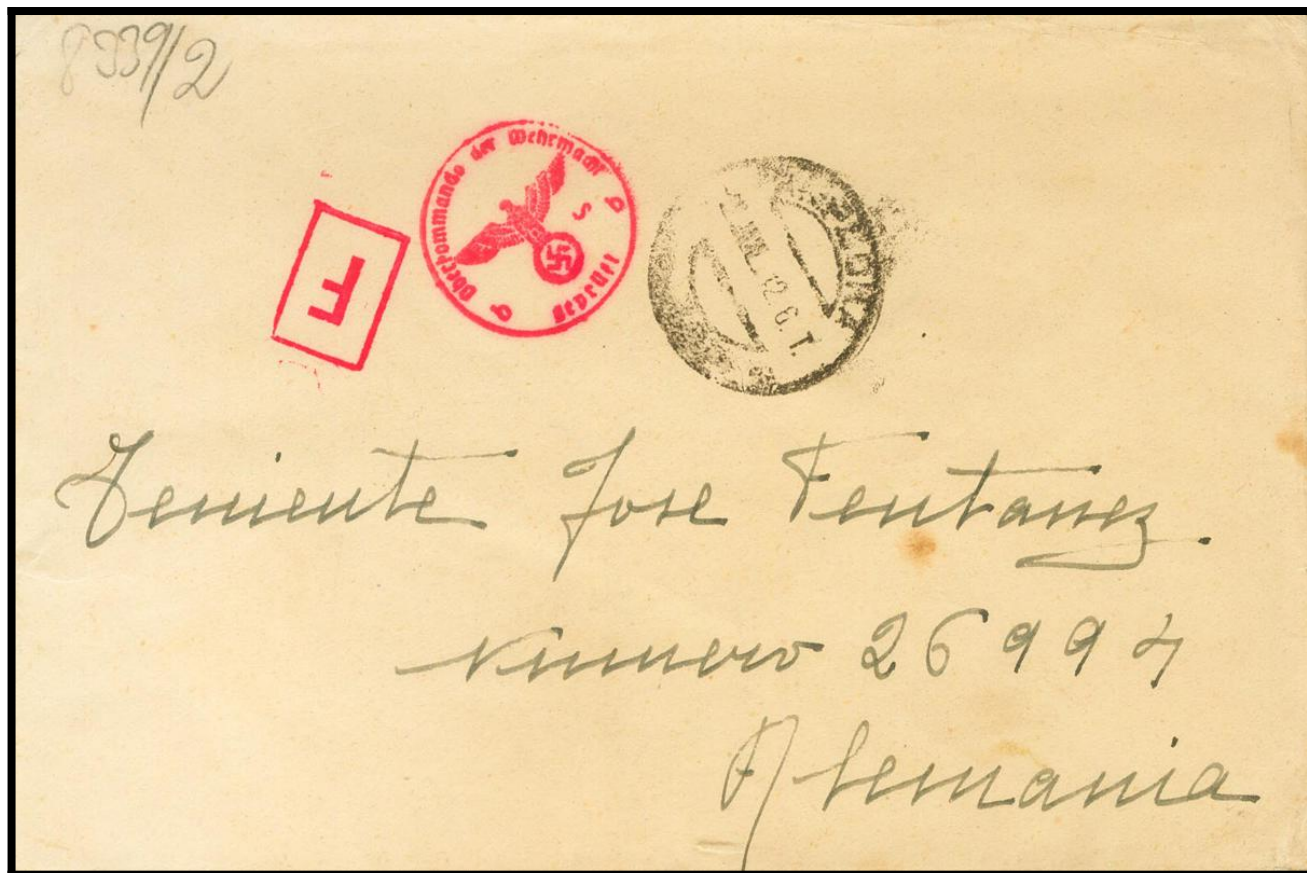 8339/2
F
Oberkommando der Wehrmacht
Geprüft
JUL. 12 6. T.
Teniente Jose Fentanez
Numero 26994
Alemania